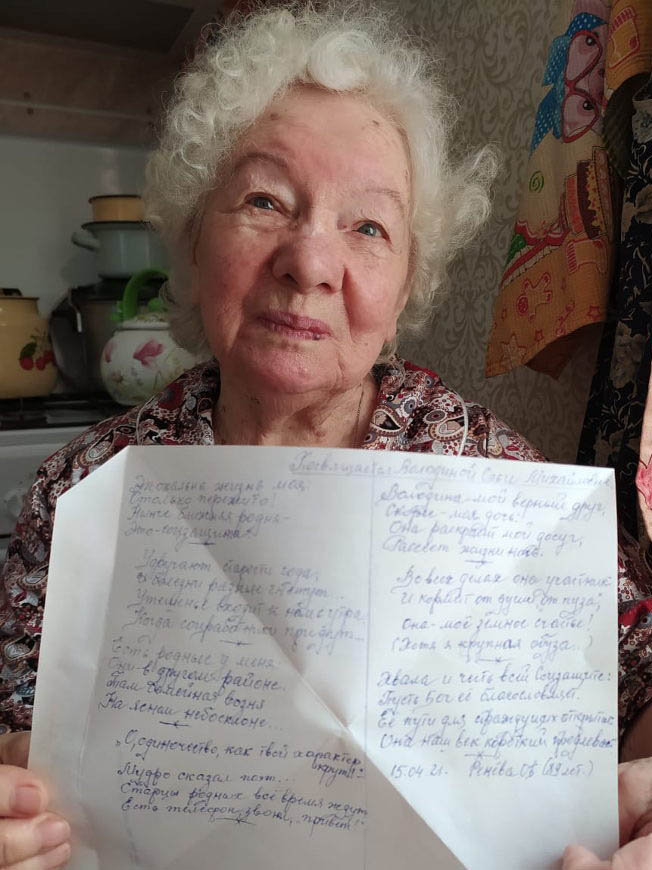 Посвящается Володиной Ольге Михайловне
Эпохальна жизнь моя:
Столько пережито!
Нынче ближняя родня -
Это - соцзащита!
Удручают старости года,
И болезни разные гнетут...
Утешенье входит к нам с утра,
Когда соцработники придут...
Есть родные у меня
Они - в другом районе.
Там семейная возня
На ясном небосклоне...
„О, одиночество, как твой характер
крут!"
Мудро сказал поэт...
Старцы родных всё время ждут
Есть телефон, звони, „привет!"
Володина - мой верный друг,
Скорее - моя дочь!
Она раскрасит мой досуг,
жизни ночь.
Во всех делах она участник
И кормит „от души, от пуза",
Она - моё земное счастье!
(Хотя я крупная обуза..)
Хвала и честь всей Соцзащите!
Пусть Бог её благословляет.
Её пути для страждущих открыты:
Она наш век короткий продлевает.
15.04.21. Ренёва (89 лет.)